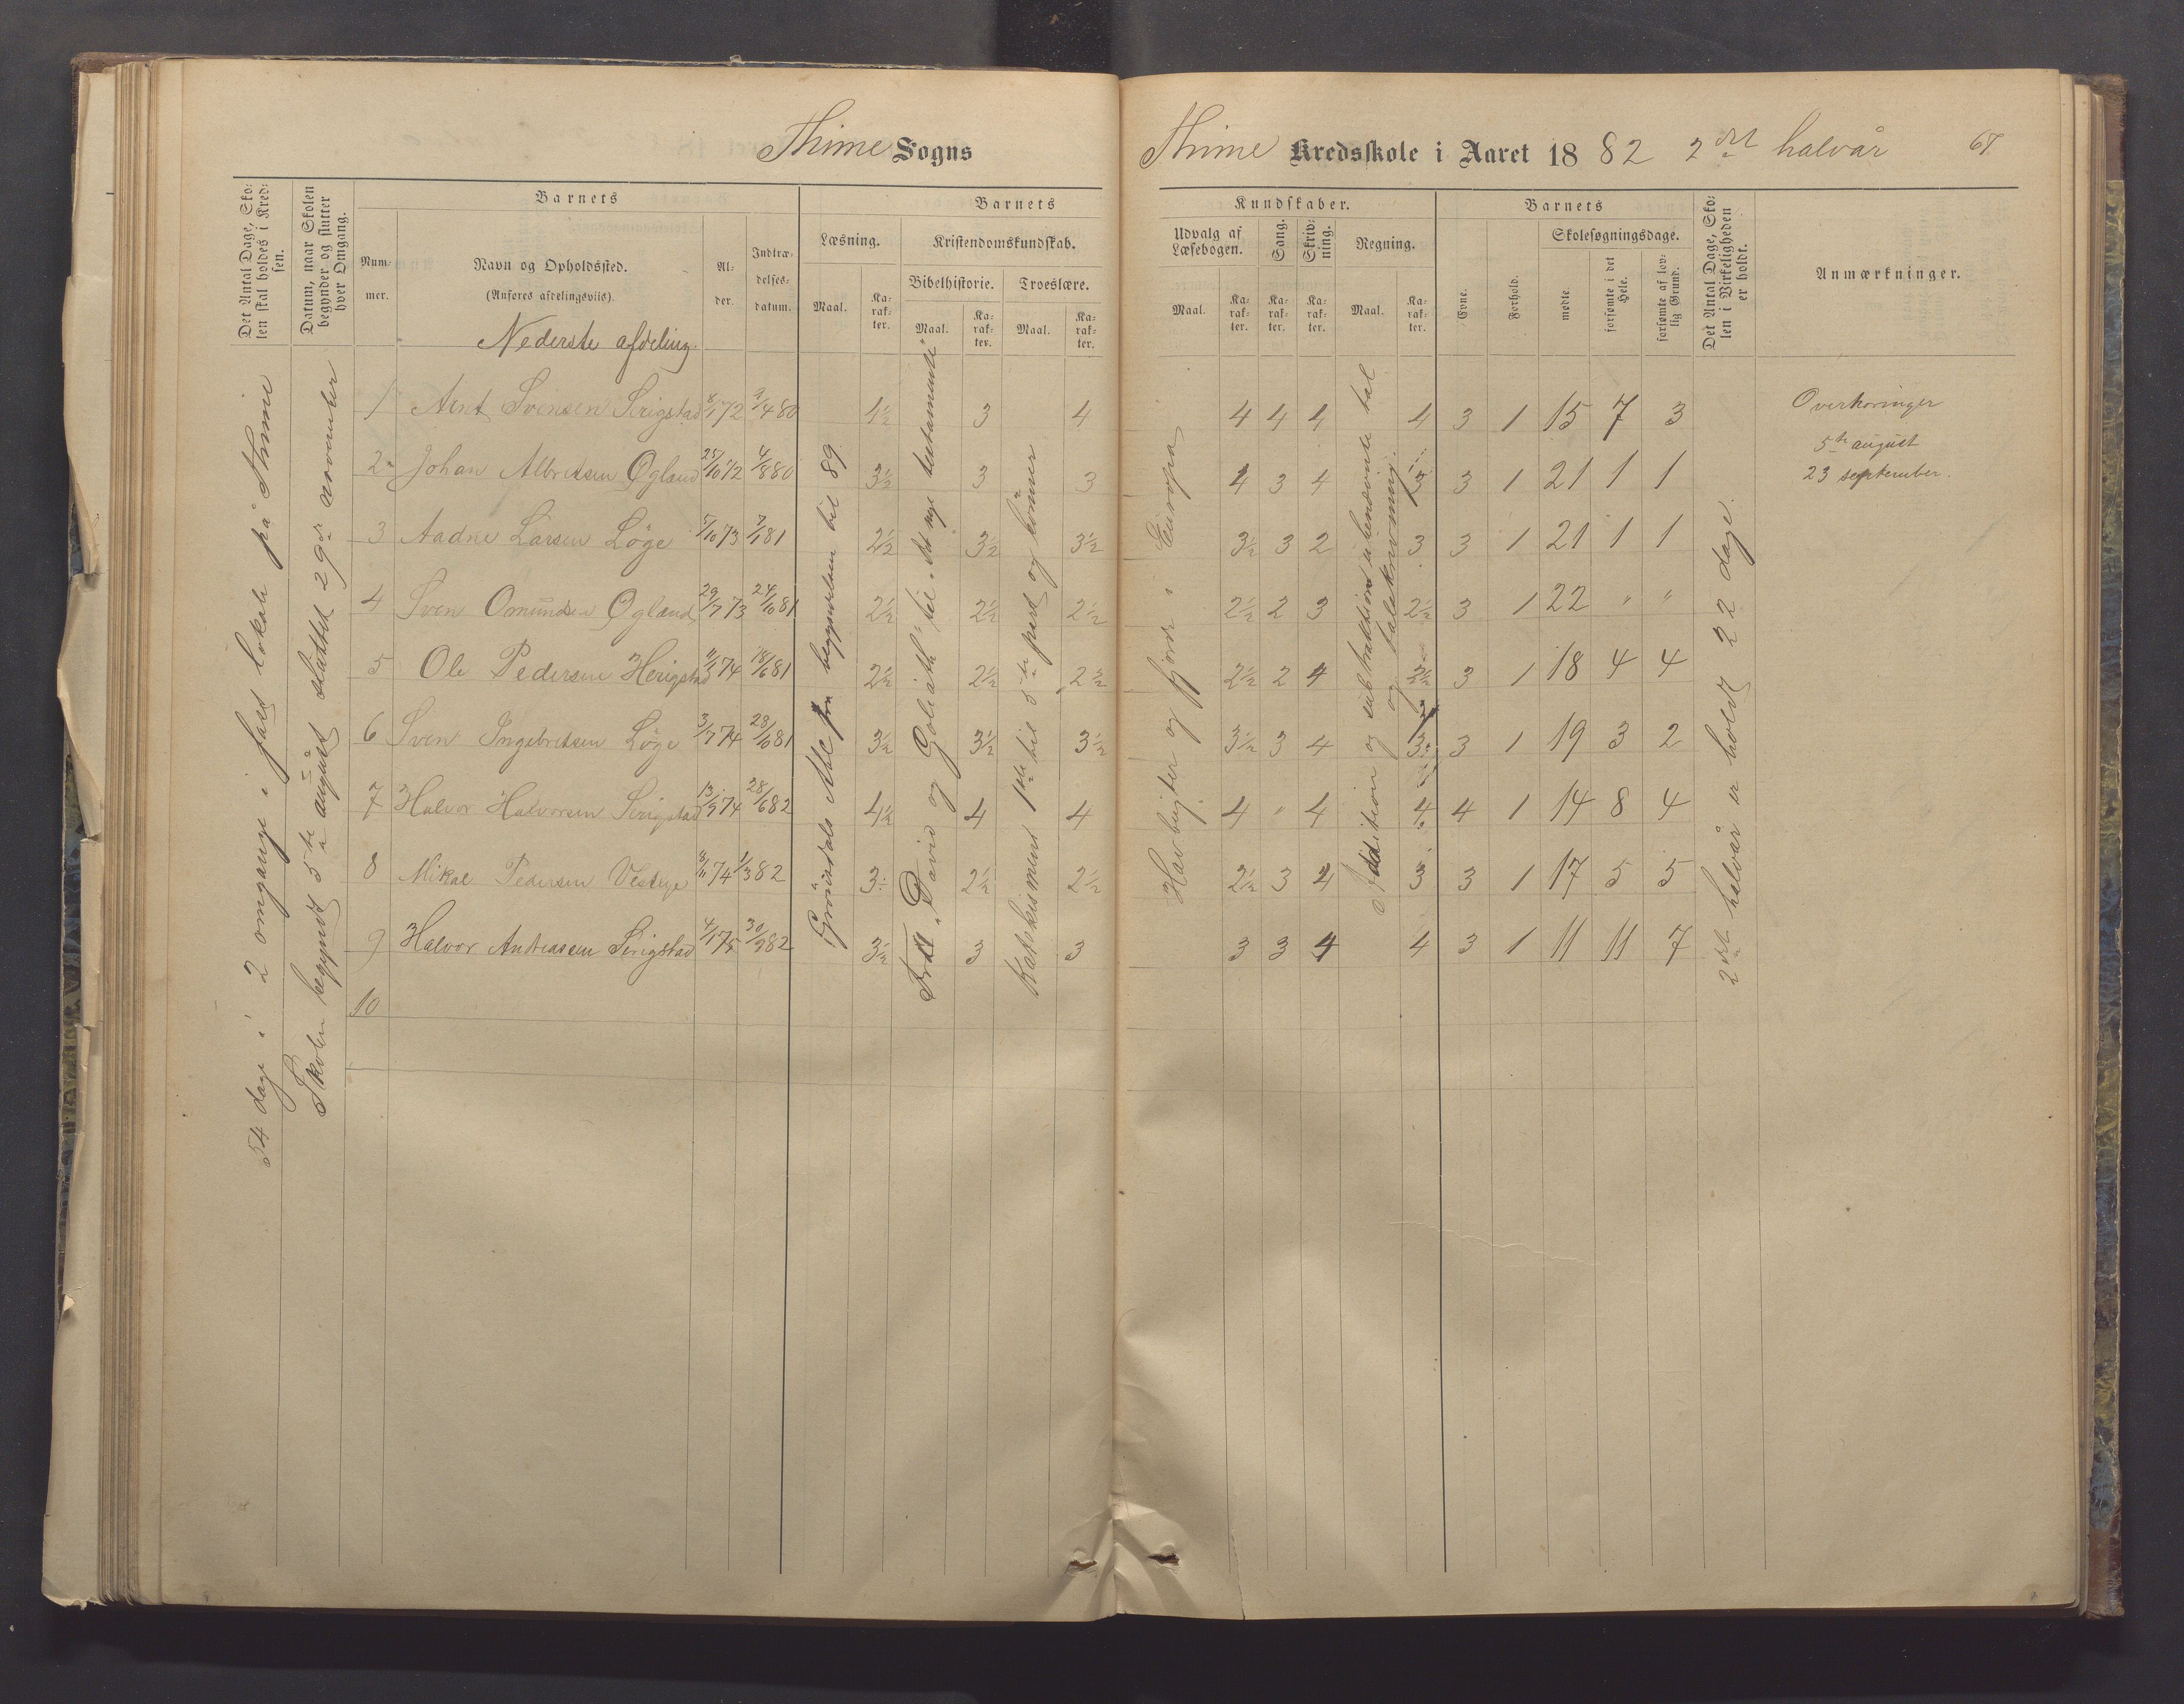 Thime Sogns
Thime Kredsskole i Aaret 1882 2det halvår 67
Det Antal Dage, Skolen skal holdes i Kredsen.
Datum, naar Skolen begynder og slutter hver Omgang.
Barnets
Nummer.
Navn og Opholdssted.
(Anføres afdelingsviis).
Alder.
Indtrædelsesdatum.
Barnets
Læsning.
Maal.
Karakter.
Kristendomskundskab.
Bibelhistorie.
Maal.
Karakter.
Troeslære.
Maal.
Karakter.
Kundskaber.
Udvalg af Læsebogen.
Maal.
Karakter.
Sang.
Karakter.
Skrivning.
Karakter.
Regning.
Maal.
Karakter.
Barnets
Evne.
Forhold.
Skolesøgningsdage.
mødte.
forsømte i det Hele.
forsømte af lovlig Grund.
Det Antal Dage, Skolen i Virkeligheden er holdt.
Anmærkninger.
Nederste afdeling.
54 dage i 2 omgange i fast lokale på Thime
Skolen begyndt 5te august sluttet 29de november
1 Arnt Svensen Serigstad 8/1 72 2/4 80 4½ 3 4 4 4 4 4 3 1 15 7 3
2 Johan Albretsen Øgland 25/10 72 4/8 80 3½ 3 3 4 3 4 3 3 1 21 1 1
3 Aadne Larsen Löge 5/10 73 7/1 81 2½ 3½ 3½ 3½ 3 2 3 3 1 21 1 1
4 Sven Omundsen Øgland 29/7 73 24/10 81 2½ 2½ 2½ 2½ 2 3 2½ 3 1 22 " "
5 Ole Pedersen Herigstad 11/1 74 18/6 81 2½ 2½ 2½ 2½ 2 4 3½ 3 1 18 4 4
6 Sven Ingebretsen Löge 3/7 74 28/10 81 3½ 3½ 3½ 3½ 3 4 3½ 3 1 19 3 2
7 Halvor Halvorsen Serigstad 13/9 74 28/6 82 4½ 4 4 4 " 4 4 4 1 14 8 4
8 Mikal Pedersen Vestlye 8/11 74 1/3 82 3 2½ 2½ 2½ 3 4 3 3 1 17 5 5
9 Halvor Andreassen Serigstad 4/1 75 30/9 82 3½ 3 3 3 3 4 4 3 1 11 11 7
10
Grönsdals Abc fra begyndelsen til 89
Fra "David og Goliath" til "det nye testamente"
Katekismens 1ste til 5te part og bönner
Havbugter og fjorde i Europa
Addition og subtraktion ubenævnte tal og talskrivning.
2det halvår er holdt 22 dage.
Overhøringer
5te august
23 september.